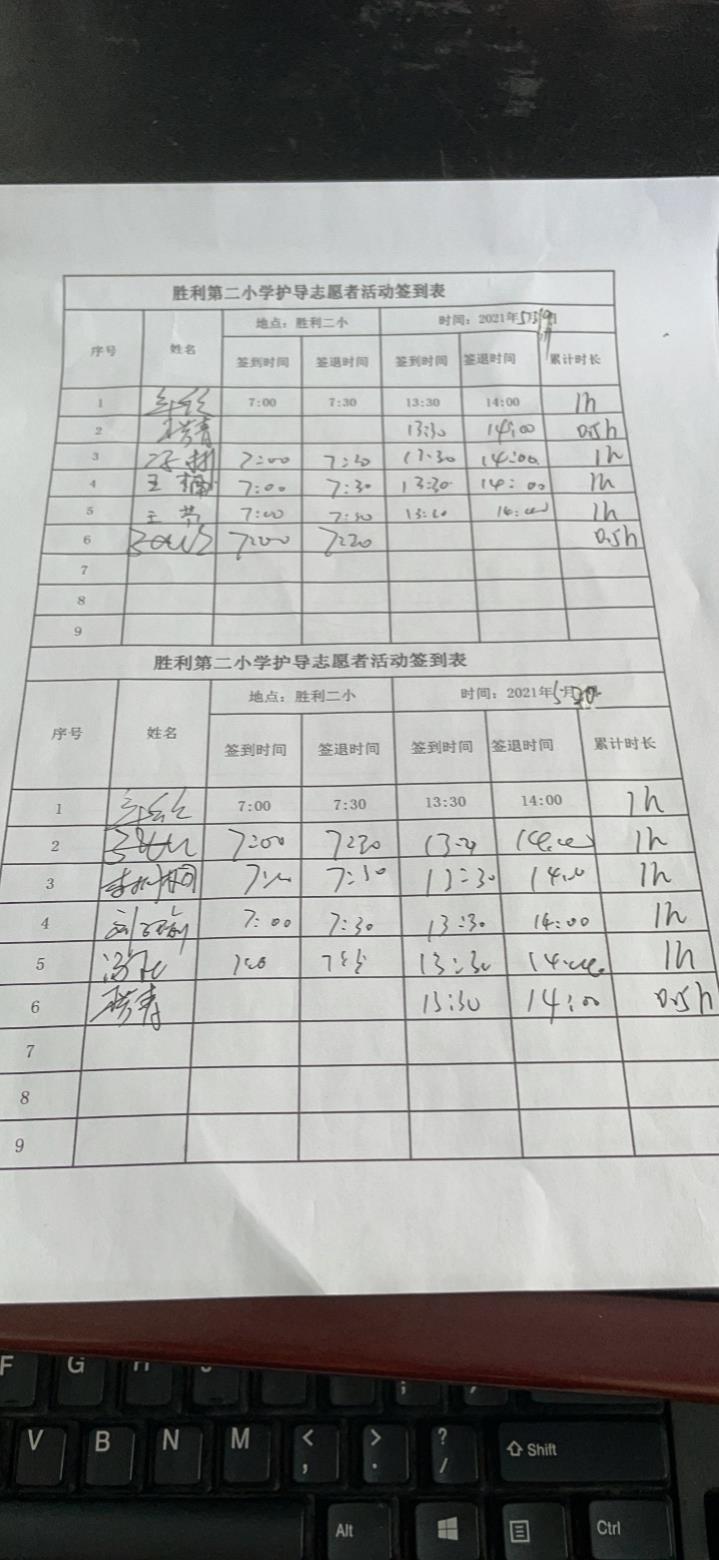 胜利第二小学护导志愿者活动签到表
序号 姓名 地点：胜利二小 时间：2021年5月19日
签到时间 签退时间 签到时间 签退时间 累计时长
1 7:00 7:30 13:30 14:00 1h
2 13:30 14:00 0.5h
3 7:00 7:30 13:30 14:00 1h
4 王楠 7:00 7:30 13:30 14:00 1h
5 王芳 7:00 7:30 13:30 14:00 1h
6 7:00 7:30 0.5h
7
8
9
胜利第二小学护导志愿者活动签到表
序号 姓名 地点：胜利二小 时间：2021年5月20
签到时间 签退时间 签到时间 签退时间 累计时长
1 7:00 7:30 13:30 14:00 1h
2 7:00 7:30 13:30 14:00 1h
3 7:00 7:30 13:30 14:00 1h
4 7:00 7:30 13:30 14:00 1h
5 13:30 14:00 1h
6 13:30 14:00 0.5h
7
8
9
F G
V B N M < , > . ? / Shift
Alt Ctrl